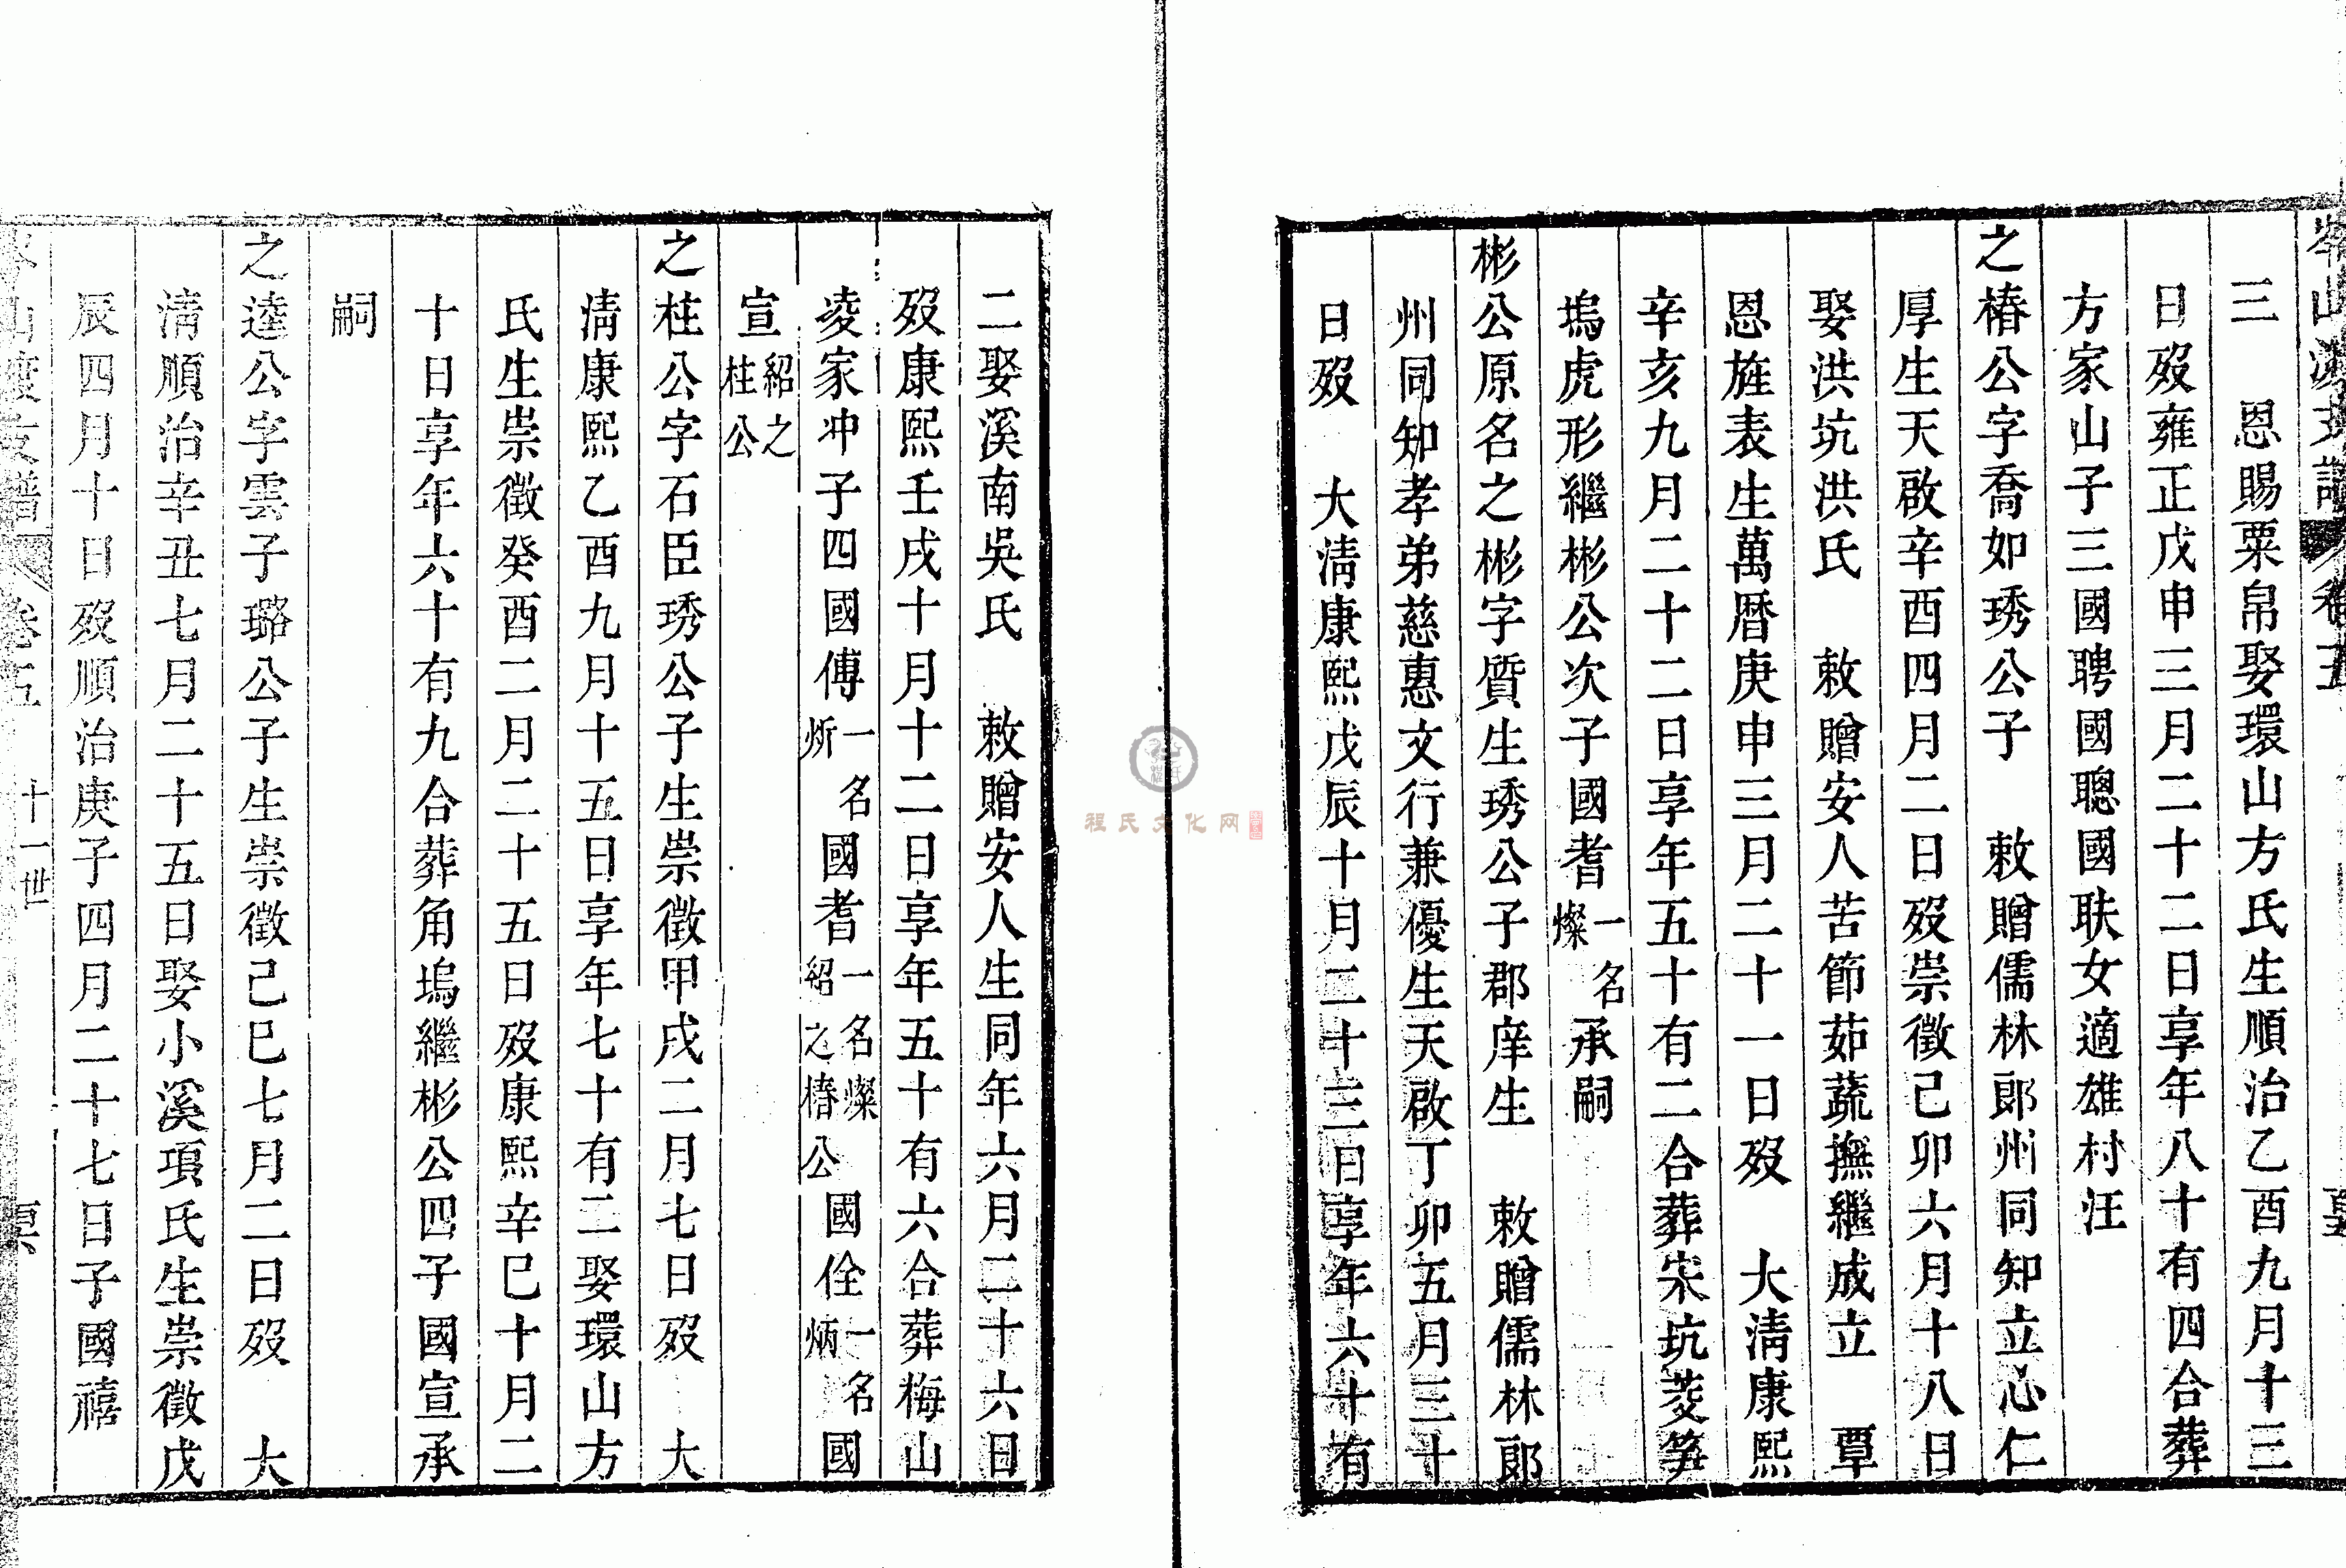 三　恩賜粟帛娶環山方氏生順治乙酉九月十三
日歿雍正戊申三月二十二日享年八十有四合葬
方家山子三國聘國聰國聃女適雄村汪
之椿公字喬如琇公子　敕贈儒林郎州同知立心仁
厚生天啟辛酉四月二日歿崇徵己卯六月十八日
娶洪坑洪氏　敕贈安人苦節茹蔬撫繼成立　覃
恩旌表生萬曆庚申三月二十一日歿　大清康熙
辛亥九月二十二日享年五十有二合葬宋坑菱笋
塢虎形繼彬公次子國耆一名燦承嗣
彬公原名之彬字質生琇公子郡庠生　敕贈儒林郎
州同知孝弟慈惠文行兼優生天啟丁卯五月三十
日歿　大清康熙戊辰十月二十三日享年六十有
二娶溪南吳氏　敕贈安人生同年六月二十六日
歿康熙壬戌十月十二日享年五十有六合葬梅山
凌家冲子四國傅一名炘國耆一名燦紹之椿公國佺一名炳國
宣紹之柱公
之柱公字石臣琇公子生崇徵甲戌二月七日歿　大
清康熙乙酉九月十五日享年七十有二娶環山方
氏生崇徵癸酉二月二十五日歿康熙辛巳十月二
十日享年六十有九合葬角塢繼彬公四子國宣承
嗣
之逵公字雲子璐公子生崇徵己巳七月二日歿　大
清順治辛丑七月二十五日娶小溪項氏生崇徵戊
辰四月十日歿順治庚子四月二十七日子國禧
卷五　十一世
程氏文化网